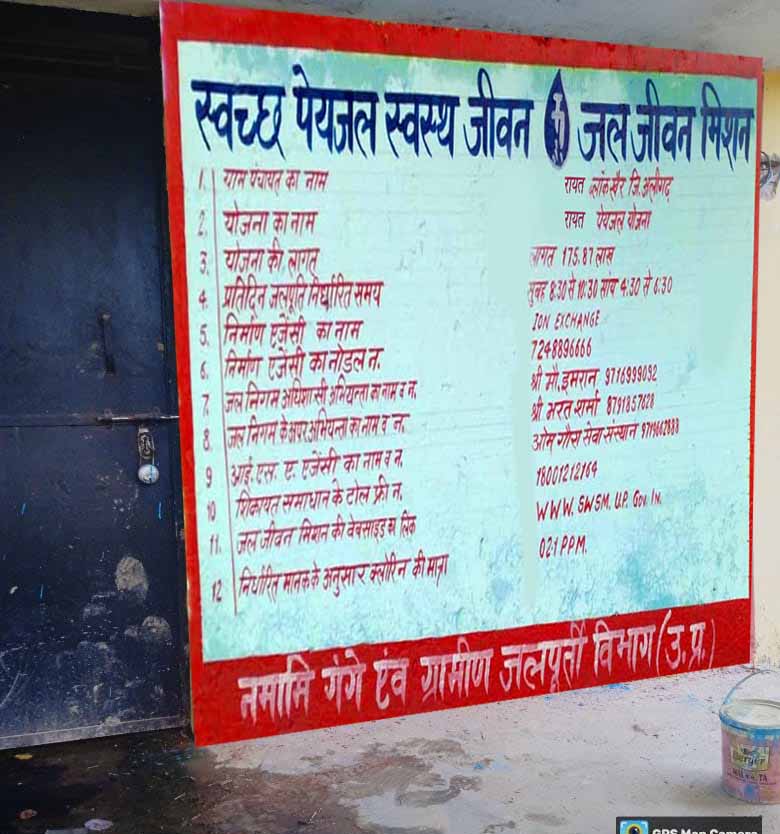 स्वच्छ पेयजल स्वस्थ जीवन जल जीवन मिशन
1. ग्राम पंचायत का नाम रायत ब्लॉक खैर जि. अलीगढ़
2. योजना का नाम रायत पेयजल योजना
3. योजना की लागत लागत 175.87 लाख
4. प्रतिदिन जलपूर्ति निर्धारित समय सुबह 8:30 से 10:30 सांय 4:30 से 6:30
5. निर्माण एजेंसी का नाम ION EXCHANGE
6. निर्माण एजेंसी का नोडल न. 7248896666
7. जल निगम अधिशासी अभियन्ता का नाम व न. श्री मौ. इमरान 9716999092
8. जल निगम के अपर अभियन्ता का नाम व न. श्री भरत शर्मा 8791857628
9. आई. एस. ए. एजेंसी का नाम व न. ओम गौरा सेवा संस्थान 9719662888
10 शिकायत समाधान के टोल फ्री न. 18001212164
11. जल जीवन मिशन की वेबसाइड व लिंक WWW. SWSM. U.P. Gov. In.
12 निर्धारित मानक के अनुसार क्लोरिन की मात्रा 02:1 PPM.
नमामि गंगे एंव ग्रामीण जलपूर्ती विभाग (उ.प्र.)
GPS Map Camera